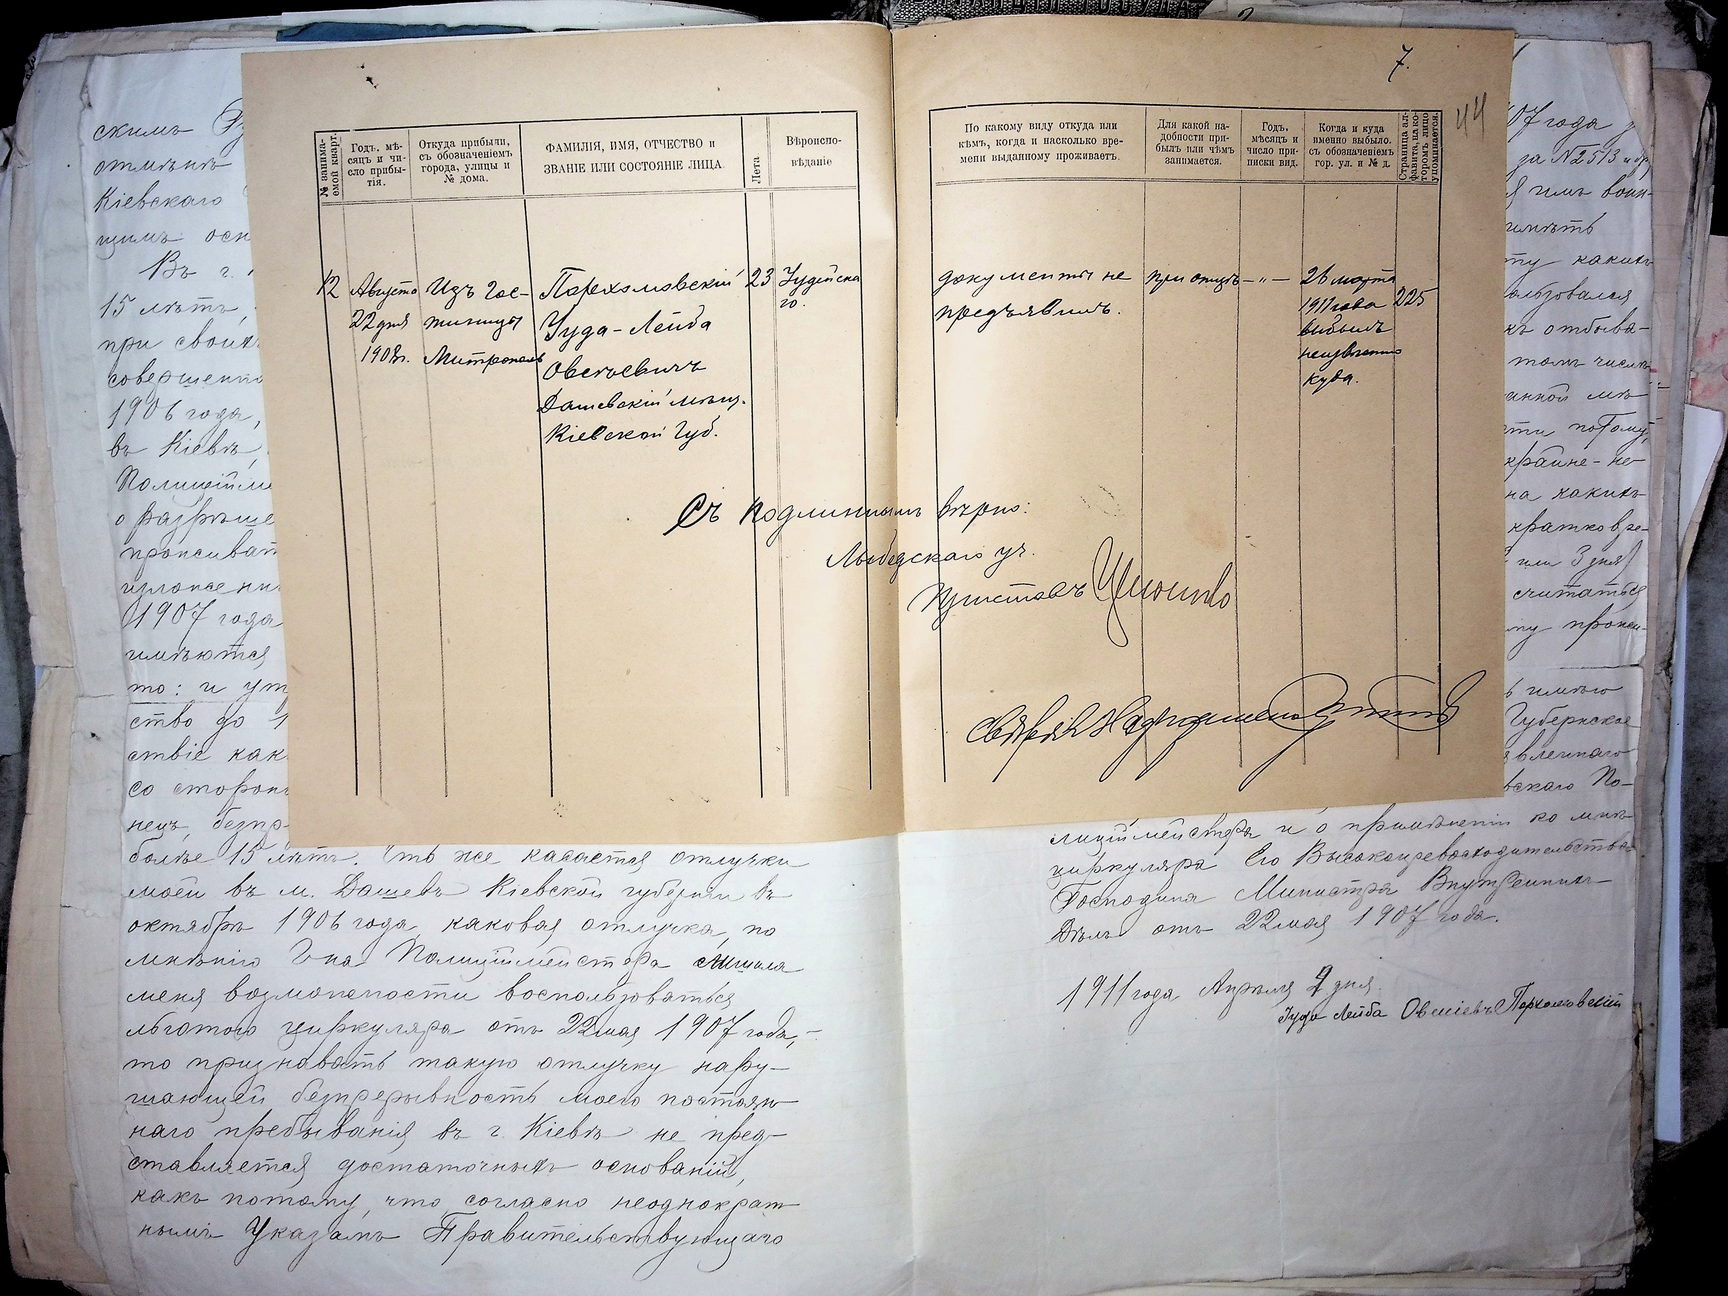 7.
44
№ занима-
емой кварт.
Годъ, мѣ-
сяцъ и чи-
сло прибы-
тія.
Откуда прибыли,
съ обозначеніемъ
города, улицы и
№ дома.
ФАМИЛІЯ, ИМЯ, ОТЧЕСТВО и
ЗВАНІЕ ИЛИ СОСТОЯНІЕ ЛИЦА.
Лета
Вѣроиспо-
вѣданіе
По какому виду откуда или
кѣмъ, когда и насколько вре-
мени выданному проживаетъ.
Для какой на-
добности при-
былъ или чѣмъ
занимается.
Годъ,
мѣсяцъ и
число при-
писки вид.
Когда и куда
именно выбыло.
съ обозначеніемъ
гор. ул. и № д.
Страница ал-
фавита, на ко-
торомъ лицо
упоминается.
12
Августа
22 дня
1908г.
Изъ гос-
тиницы
Митрополь
Пархомовскій
Іуда-Лейба
Овсѣевичъ
Дашевскій мѣщ.
Кіевской губ.
23
Іудейска
го.
документы не
предъявилъ.
при отцѣ
—„—
26 марта
1911 года
выбылъ
неизвѣстно
куда.
225
Съ подлиннымъ вѣрно:
Лыбедскаго уч.
Приставъ
скимъ
отмѣнѣ
Кіевскаго
щимъ осн
Въ г.
15 лѣтъ,
при своихъ
совершенно
1906 года,
въ Кіевѣ,
Полиційме
о разрѣше
прописыват
изложенн
1907 года
имѣются
то: и ут
ство до 1
ствіе как
со сторон
нецъ, безпр
болѣе 15 лѣтъ. Что же касается отлучки
моей въ м. Дашевъ Кіевской губерніи въ
октябрѣ 1906 года, каковая отлучка, по
мнѣнію Г-на Полиційместера лишила
меня возможности воспользоваться
льготою циркуляра отъ 22 мая 1907 года,—
то признавать такую отлучку нару-
шающей безпрерывность моего постоян-
наго пребыванія въ г. Кіевѣ не пред-
ставляется достаточныхъ основаній,
какъ потому, что согласно неоднократ-
нымъ Указамъ Правительствующаго
07 года
за №2513 и пр
я имъ воин-
имѣть
ту какихъ
ользовался
къ отбыва-
томъ числѣ
анной мѣ
сти потому,
крайне-не
на какихъ
кратковре-
или 3 дня)
считаться
му пропи-
ь имѣю
Губернское
вскаго По-
лиційместера и о примѣненіи ко мнѣ
циркуляра Его Высокопревосходительства
Господина Министра Внутреннихъ
Дѣлъ отъ 22 мая 1907 года.
1911 года Апрѣля 9 дня.
Іуда Лейба Овсѣевъ Пархомовскій